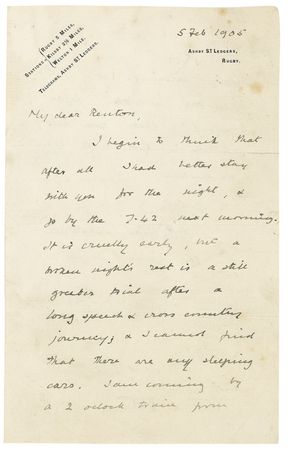 5 Feb 1905
Stations {Rugby 5 Miles.
Kilsby 2½ Miles.
Welton 1 Mile.
Telegrams, Ashby St. Ledgers.
Ashby St. Ledgers,
Rugby.
My dear Renton,
I begin to think that
after all I had better stay
with you for the night, &
go by the 7.42 next morning.
It is cruelly early, but a
broken night's rest is a still
greater trial after a
long speech & cross country
journey; & I cannot find
that there are any sleeping
cars. I am coming by
a 2 oclock train from